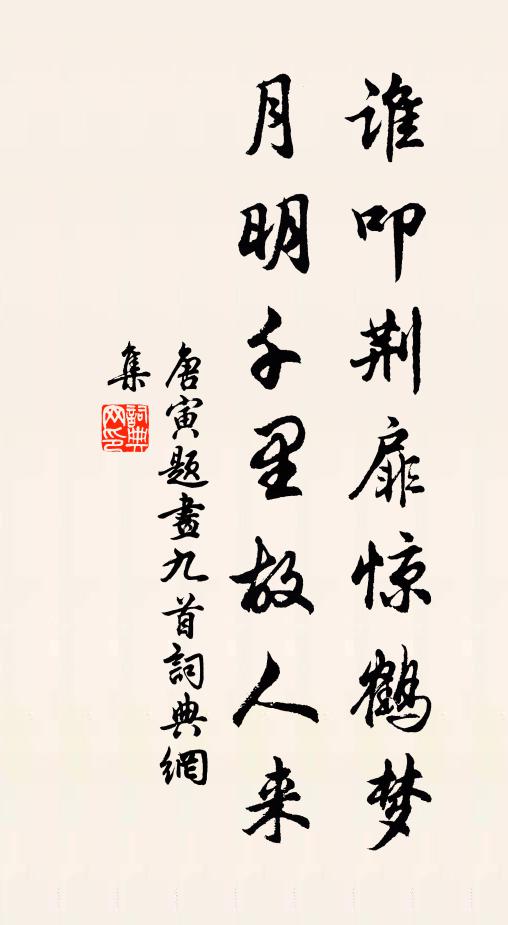 谁叩荆扉惊鹤梦
月明千里故人来
唐寅题画九首詞典網
集
詞典网印